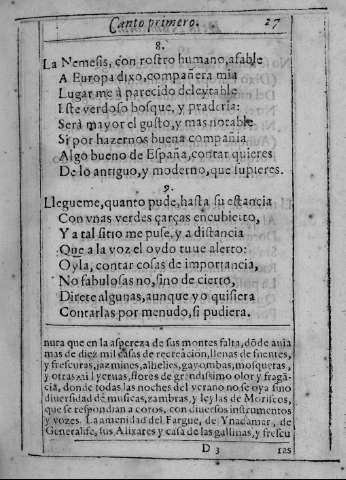 Canto primero. 27
8.
La Nemesis, con rostro humano, afable
A Europa dixo, compañera mia
Lugar me à parecido deleytable
Este verdoso bosque, y praderia:
Serà mayor el gusto, y mas notable
Si por hazernos buena compañia
Algo bueno de España, contar quieres
De lo antiguo, y moderno, que supieres.
9.
Llegueme, quanto pude, hasta su estancia
Con vnas verdes çarças encubierto,
Y a tal sitio me puse, y a distancia
Que a la voz el oydo tuue alerto:
Oyla, contar cosas de importancia,
No fabulosas no, sino de cierto,
Direte algunas, aunque yo quisiera
Contarlas por menudo, si pudiera.
nura que en la aspereza de sus montes falta, dõde auia
mas de diez mil casas de recreacion, llenas de fuentes,
y frescuras, jazmines, alhelies, gayombas, mosquetas,
y otras mil yeruas, flores de grandissimo olor y fragã
cia, donde todas las noches del verano no se oya sino
diuersidad de musicas, zambras, y leylas de Moriscos,
que se respondian a coros, con diuersos instrumentos
y vozes. La amenidad del Fargue, de Ynadamar, de
Generalife, sus Alixares y casa de las gallinas, y frescu
D 3 ras